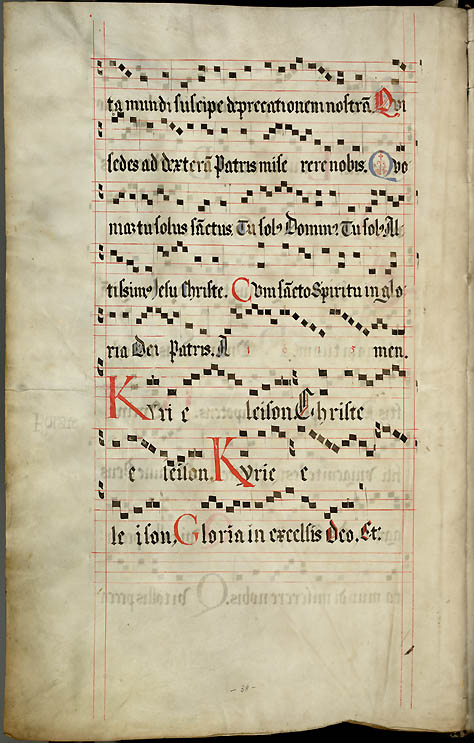 ta mundi suscipe deprecationem nostrā. Qvi
sedes ad dexterā Patris mise rere nobis. Qvo
niaz tu solus sāctus. Tu solꝰ Dominꝰ. Tu solꝰ Al
tissimꝰ Jesu Christe. Cvm sācto Spiritu in glo
ria Dei Patris. A men.
Kyri e leison. Christe
e leison. Kyrie e
le ison. Gloria in excelsis deo. Et
- 38 -